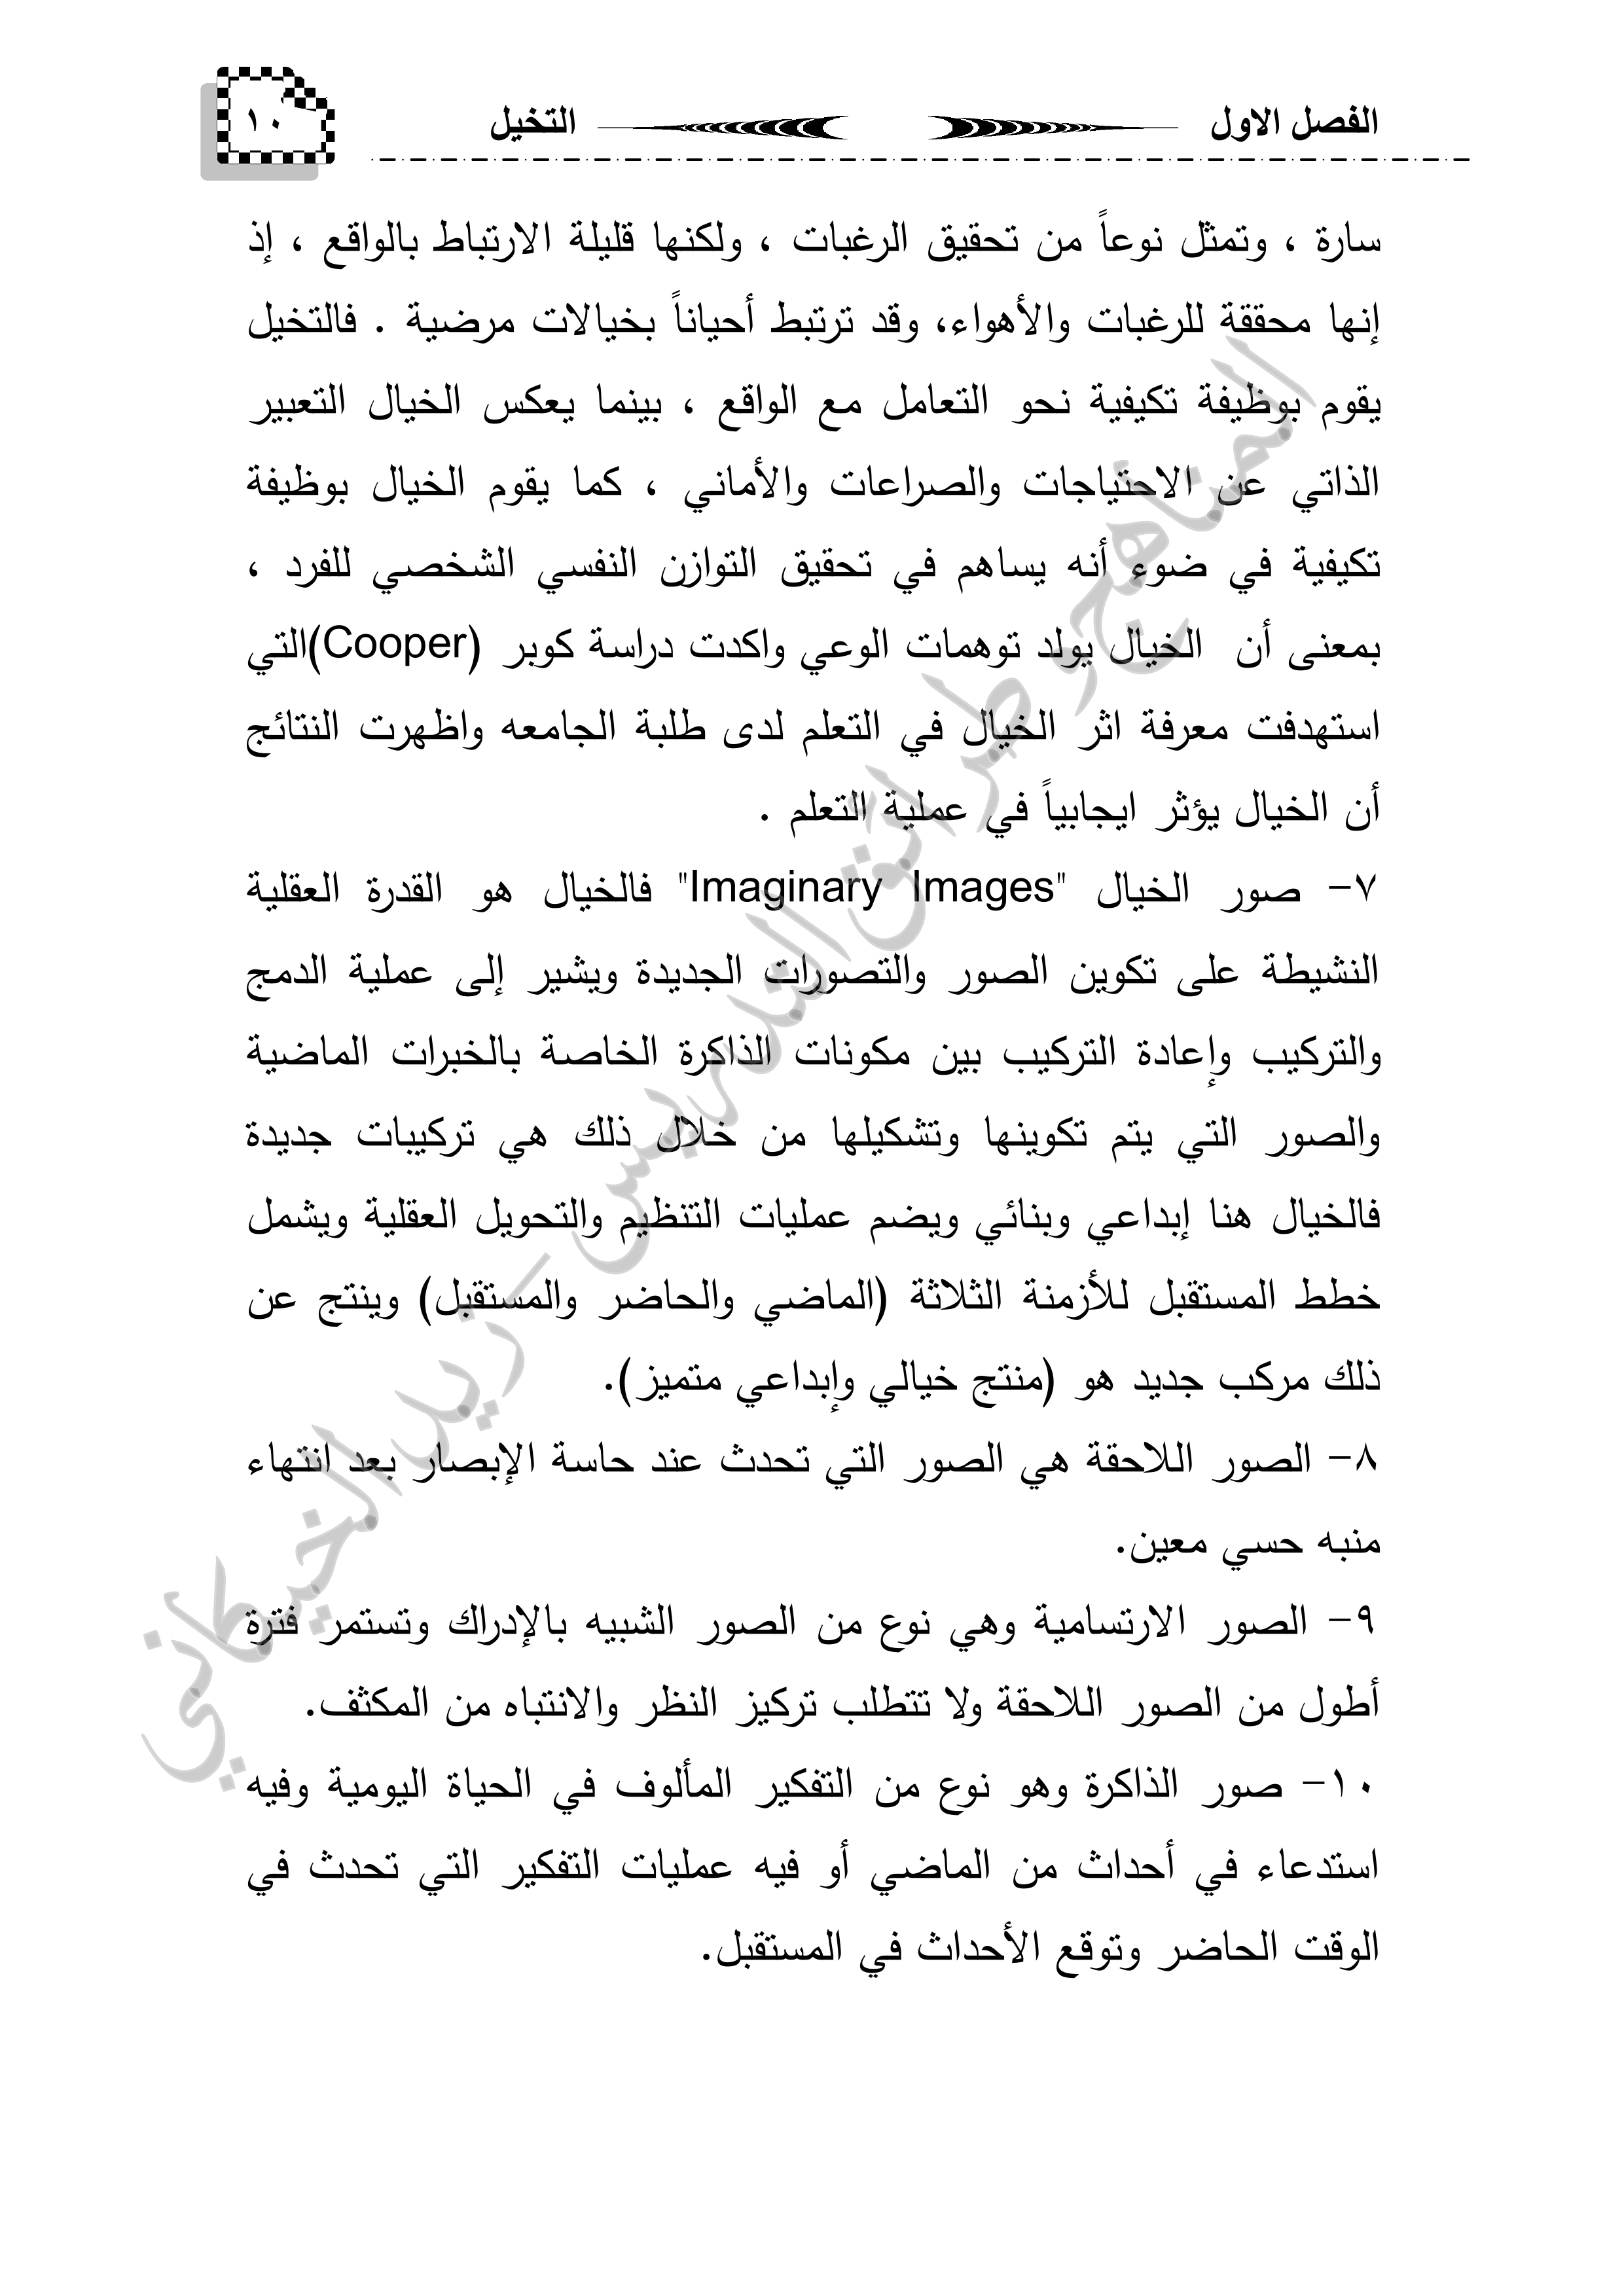 الفصل الاول التخيل ١٠
سارة ، وتمثل نوعاً من تحقيق الرغبات ، ولكنها قليلة الارتباط بالواقع ، إذ
إنها محققة للرغبات والأهواء، وقد ترتبط أحياناً بخيالات مرضية . فالتخيل
يقوم بوظيفة تكيفية نحو التعامل مع الواقع ، بينما يعكس الخيال التعبير
الذاتي عن الاحتياجات والصراعات والأماني ، كما يقوم الخيال بوظيفة
تكيفية في ضوء أنه يساهم في تحقيق التوازن النفسي الشخصي للفرد ،
بمعنى أن الخيال يولد توهمات الوعي واكدت دراسة كوبر (Cooper)التي
استهدفت معرفة اثر الخيال في التعلم لدى طلبة الجامعه واظهرت النتائج
أن الخيال يؤثر ايجابياً في عملية التعلم .
٧- صور الخيال "Imaginary Images" فالخيال هو القدرة العقلية
النشيطة على تكوين الصور والتصورات الجديدة ويشير إلى عملية الدمج
والتركيب وإعادة التركيب بين مكونات الذاكرة الخاصة بالخبرات الماضية
والصور التي يتم تكوينها وتشكيلها من خلال ذلك هي تركيبات جديدة
فالخيال هنا إبداعي وبنائي ويضم عمليات التنظيم والتحويل العقلية ويشمل
خطط المستقبل للأزمنة الثلاثة (الماضي والحاضر والمستقبل) وينتج عن
ذلك مركب جديد هو (منتج خيالي وإبداعي متميز).
٨- الصور اللاحقة هي الصور التي تحدث عند حاسة الإبصار بعد انتهاء
منبه حسي معين.
٩- الصور الارتسامية وهي نوع من الصور الشبيه بالإدراك وتستمر فترة
أطول من الصور اللاحقة ولا تتطلب تركيز النظر والانتباه من المكثف.
١٠- صور الذاكرة وهو نوع من التفكير المألوف في الحياة اليومية وفيه
استدعاء في أحداث من الماضي أو فيه عمليات التفكير التي تحدث في
الوقت الحاضر وتوقع الأحداث في المستقبل.
المناهج وطرائق التدريس - زيد الخيكاني